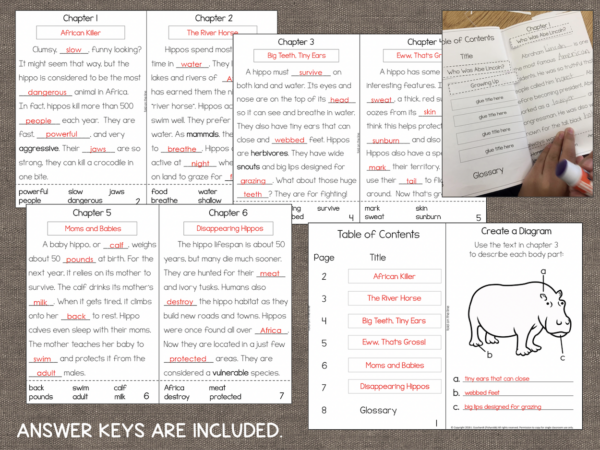 Chapter 1
African Killer
Clumsy, slow, funny looking?
It might seem that way, but the
hippo is considered to be the most
dangerous animal in Africa.
In fact, hippos kill more than 500
people each year. They are
fast, powerful, and very
aggressive. Their jaws are so
strong, they can kill a crocodile in
one bite.
powerful slow jaws
people dangerous 2
Chapter 2
The River Horse
Hippos spend most
time in water. They
lakes and rivers of
has earned them the
"river horse". Hippos
swim well. They prefer
water. As mammals,
to breathe. Hippos
active at night when
on land to graze for
food water
breathe shallow
night
Chapter 3
Big Teeth, Tiny Ears
A hippo must survive on
both land and water. Its eyes and
nose are on the top of its head
so it can see and breathe in water.
They also have tiny ears that can
close and webbed feet. Hippos
are herbivores. They have wide
snouts and big lips designed for
grazing. What about those huge
teeth? They are for fighting!
grazing survive
4
Chapter 4
Eww, That's
A hippo has some
interesting features.
sweat, a thick, red
oozes from its skin
think this helps protect
sunburn and also
Hippos also have a
mark their territory.
use their tail to
around. Now that's
mark skin
sweat sunburn 5
Table of Contents
Title
Who Was Abe Lincoln?
Growing Up
glue title here
glue title here
glue title here
glue title here
Glossary
Chapter 1
Who Was Abe Lincoln?
Abraham
Chapter 5
Moms and Babies
A baby hippo, or calf, weighs
about 50 pounds at birth. For the
next year, it relies on its mother to
survive. The calf drinks its mother's
milk. When it gets tired, it climbs
onto her back to rest. Hippo
calves even sleep with their moms.
The mother teaches her baby to
swim and protects it from the
adult males.
back swim calf
pounds adult milk 6
Chapter 6
Disappearing Hippos
The hippo lifespan is about 50
years, but many die much sooner.
They are hunted for their meat
and ivory tusks. Humans also
destroy the hippo habitat as they
build new roads and towns. Hippos
were once found all over Africa.
Now they are located in just a few
protected areas. They are
considered a vulnerable species.
Africa meat
destroy protected 7
Table of Contents
Page Title
2 African Killer
3 The River Horse
4 Big Teeth, Tiny Ears
5 Eww, That's Gross!
6 Moms and Babies
7 Disappearing Hippos
8 Glossary
1
Create a Diagram
Use the text in chapter 3
to describe each body part:
a
b
c
a. tiny ears that can close
b. webbed feet
c. big lips designed for grazing
ANSWER KEYS ARE INCLUDED.